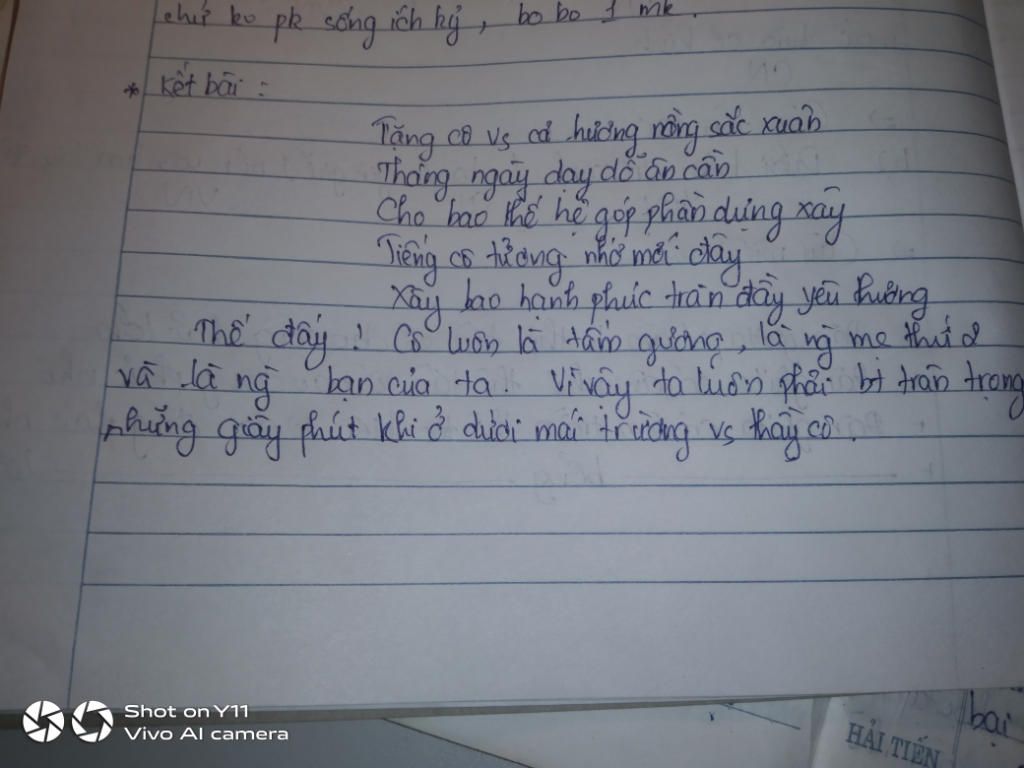 chứ ko pk sống ích kỷ, bo bo 1 mk.
* Kết bài:
Tặng cô vs cả hương nồng sắc xuân
Tháng ngày dạy dỗ ân cần
Cho bao thế hệ góp phần dựng xây
Tiếng cô tưởng nhớ mới đây
Xây bao hạnh phúc tràn đầy yêu thương
Thế đấy! Cô luôn là tấm gương, là ng mẹ thứ 2
và là ng bạn của ta. Vì vậy ta luôn phải bt trân trọng
những giây phút khi ở dưới mái trường vs thầy cô.
Shot on Y11
Vivo AI camera
HẢI TIẾN
bại